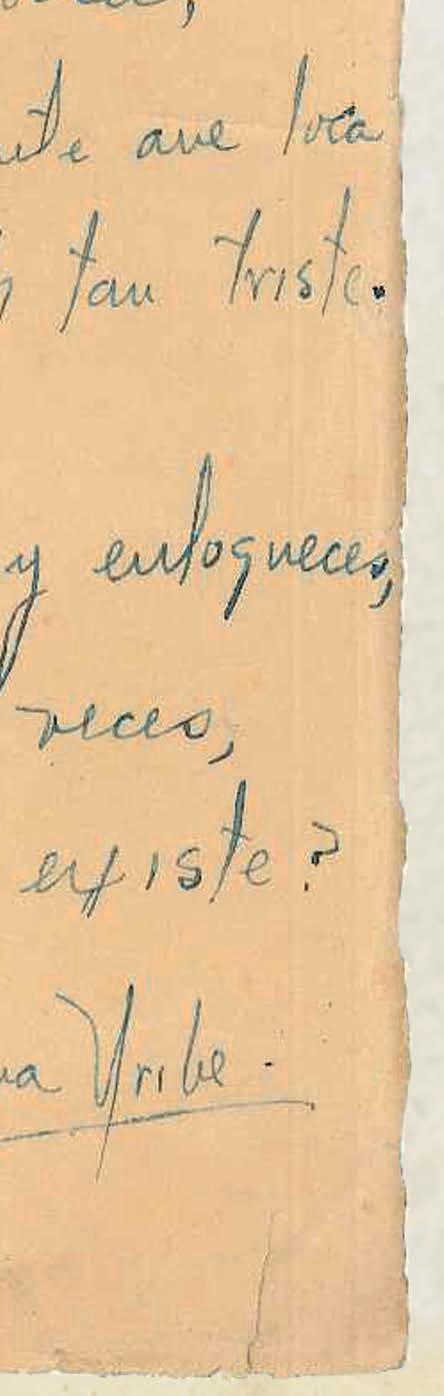 ave loca
tan triste.
y enloqueces,
veces,
existe?
Uribe.